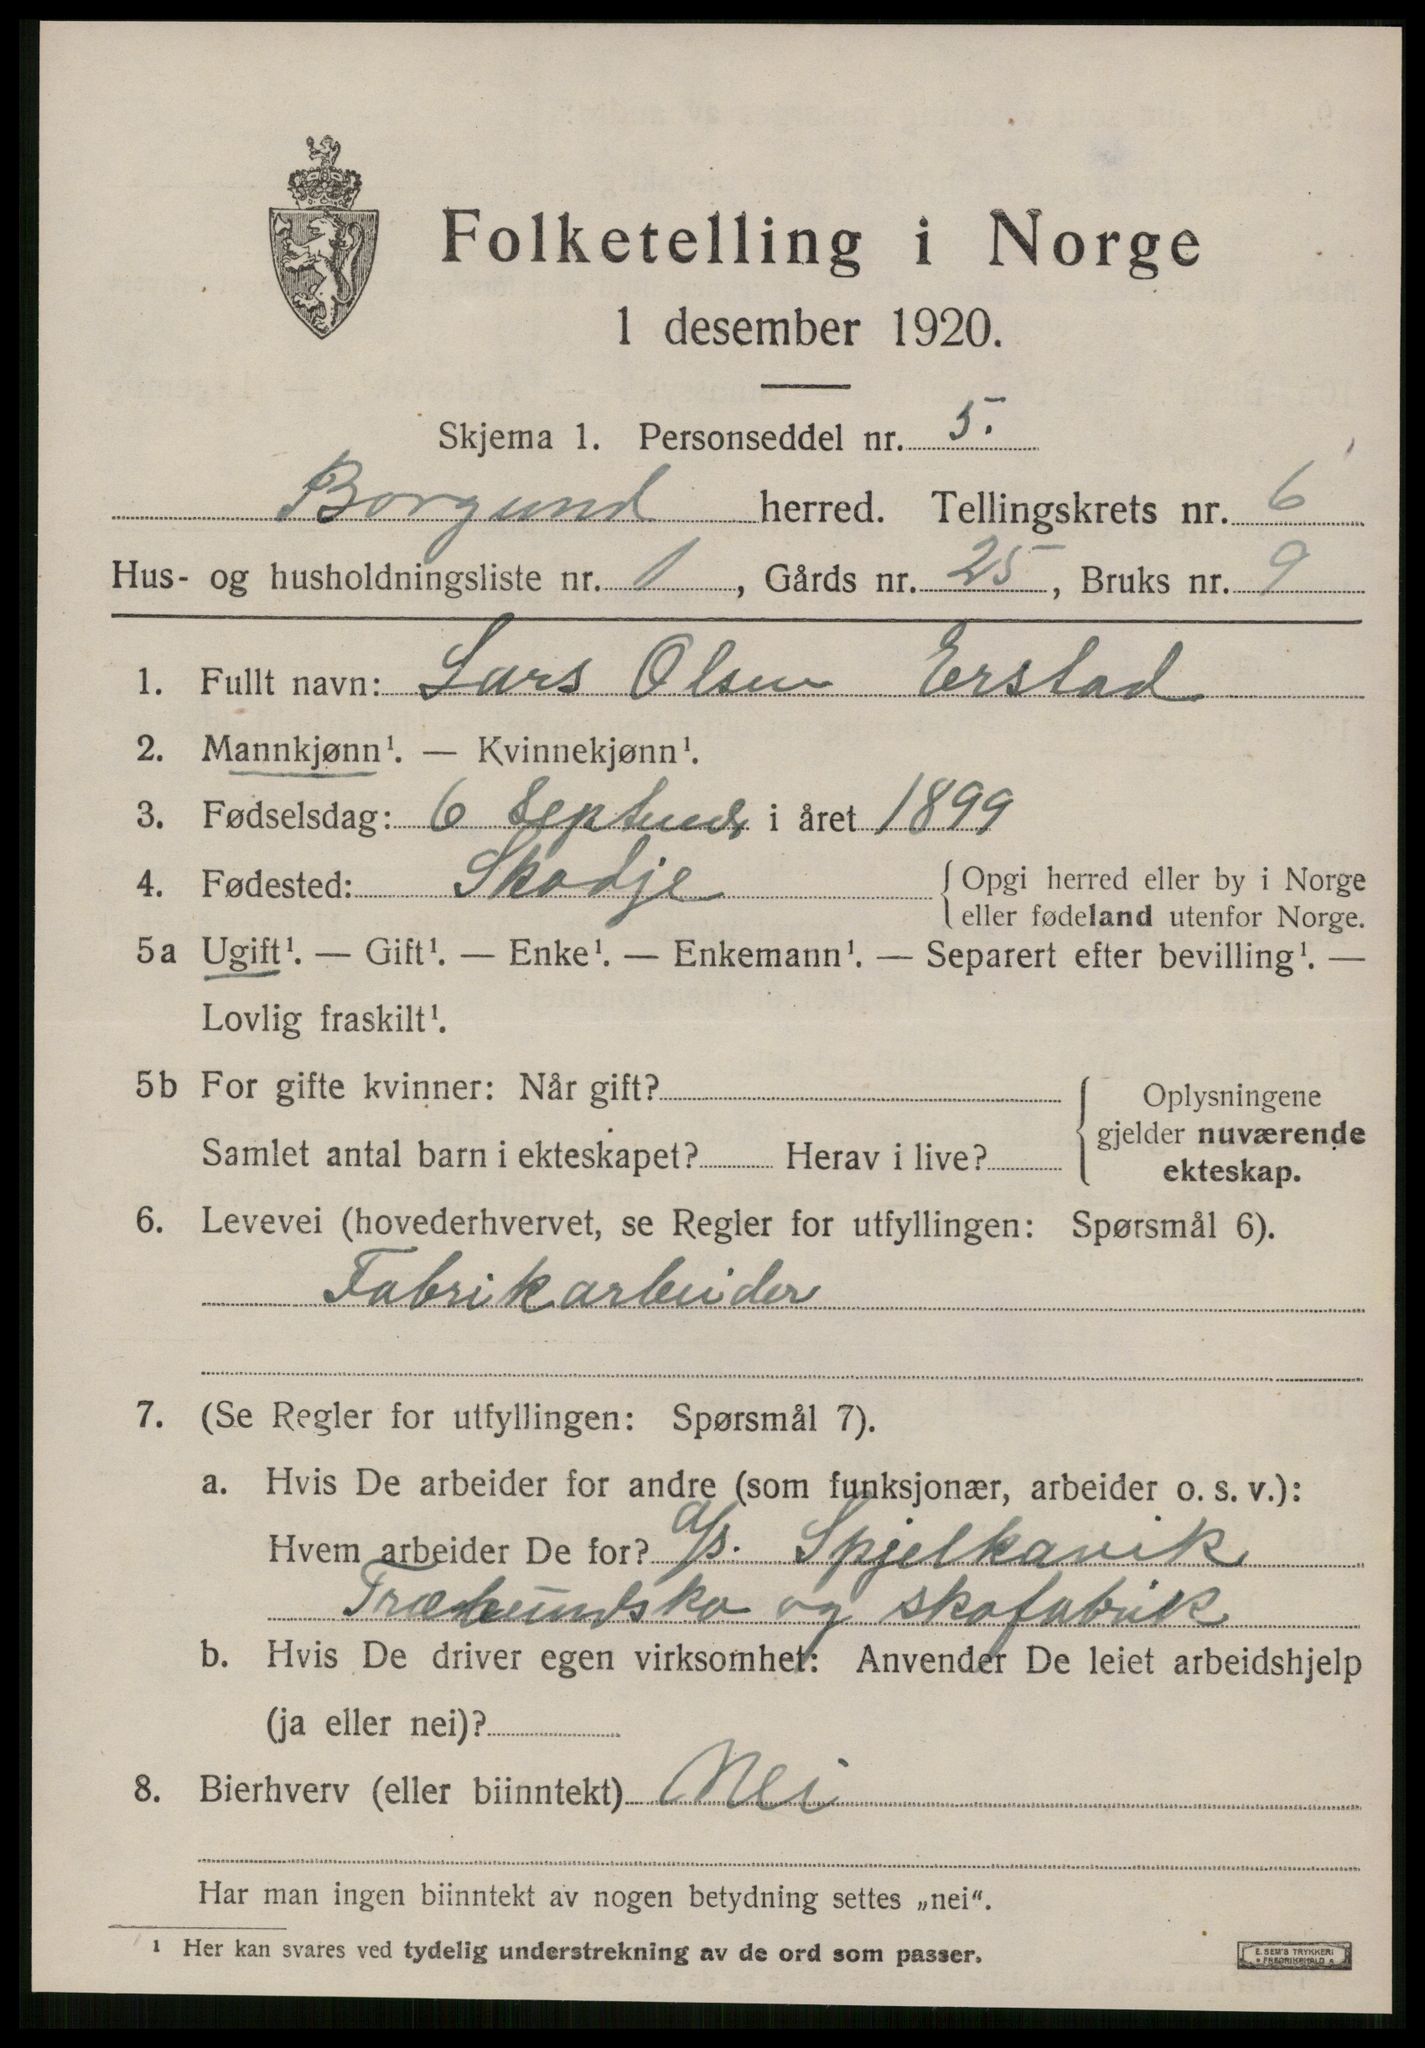 Folketelling i Norge
1 desember 1920.
Skjema 1. Personseddel nr. 5.
Borgund herred. Tellingskrets nr. 6
Hus- og husholdningsliste nr. 1, Gårds nr. 25, Bruks nr. 9
1. Fullt navn: Lars Olsen Erstad
2. Mannkjønn¹. — Kvinnekjønn¹.
3. Fødselsdag: 6 Septembr i året 1899
4. Fødested: Skodje {Opgi herred eller by i Norge
eller fødeland utenfor Norge.
5a Ugift¹. — Gift¹. — Enke¹. — Enkemann¹. — Separert efter bevilling¹. —
Lovlig fraskilt¹.
5b For gifte kvinner: Når gift?
Samlet antal barn i ekteskapet? Herav i live?
{Oplysningene
gjelder nuværende
ekteskap.
6. Levevei (hovederhvervet, se Regler for utfyllingen: Spørsmål 6).
Fabrikarbeider
7. (Se Regler for utfyllingen: Spørsmål 7).
a. Hvis De arbeider for andre (som funksjonær, arbeider o. s. v.):
Hvem arbeider De for? a/s. Spjelkavik
Træbundsko og skofabrik
b. Hvis De driver egen virksomhet: Anvender De leiet arbeidshjelp
(ja eller nei)?
8. Bierhverv (eller biinntekt) Nei
Har man ingen biinntekt av nogen betydning settes „nei“.
¹ Her kan svares ved tydelig understrekning av de ord som passer.
E. SEM'S TRYKKERI
FREDRIKSHALD